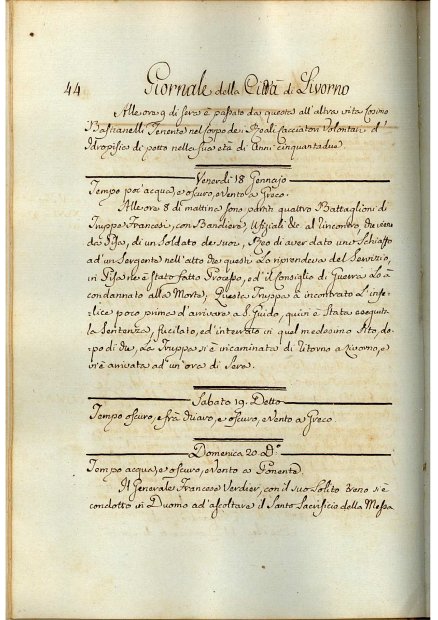 44 Giornale della Città di Livorno
Alle ore 9 di sera è passato da questa all'altra vita Cosimo
Bastianelli Tenente nel Corpo dei Reali Cacciatori Volontari d'
Idropisia di petto nella sua età di Anni cinquantadue.
Venerdì 18 Gennajo
Tempo poc'acqua, e oscuro, e Vento a Greco.
Alle ore 8 di mattina sono partiti quattro Battaglioni di
Truppe Francesi, con Bandiere, Ufiziali &c. al rincontro, che viene
da Pisa, di un Soldato dei suoi, Reo di aver dato uno Schiaffo
ad un Sergente nell'atto che questi lo riprendeva del Servizio,
in Pisa ne è stato fatto Processo, ed il Consiglio di Guerra lo à
condannato alla Morte; Questa Truppa à incontrato L'infe-
lice poco prima d'arrivare a S. Guido, quivi è stata eseguita
la Sentenza, fucilato, ed interrato in quel medesimo Sito, do-
po di che, La Truppa si è incaminata di ritorno a Livorno, e
vi è arivata ad un'ora di Sera.
Sabato 19. Detto
Tempo oscuro, e frà chiaro, e oscuro, e Vento a Greco.
Domenica 20 D.º
Tempo acqua, e oscuro, e Vento a Ponente.
Il Generale Francese Verdier, con il suo Solito treno si è
condotto in Duomo ad'ascoltare il Santo Sacrifício della Messa